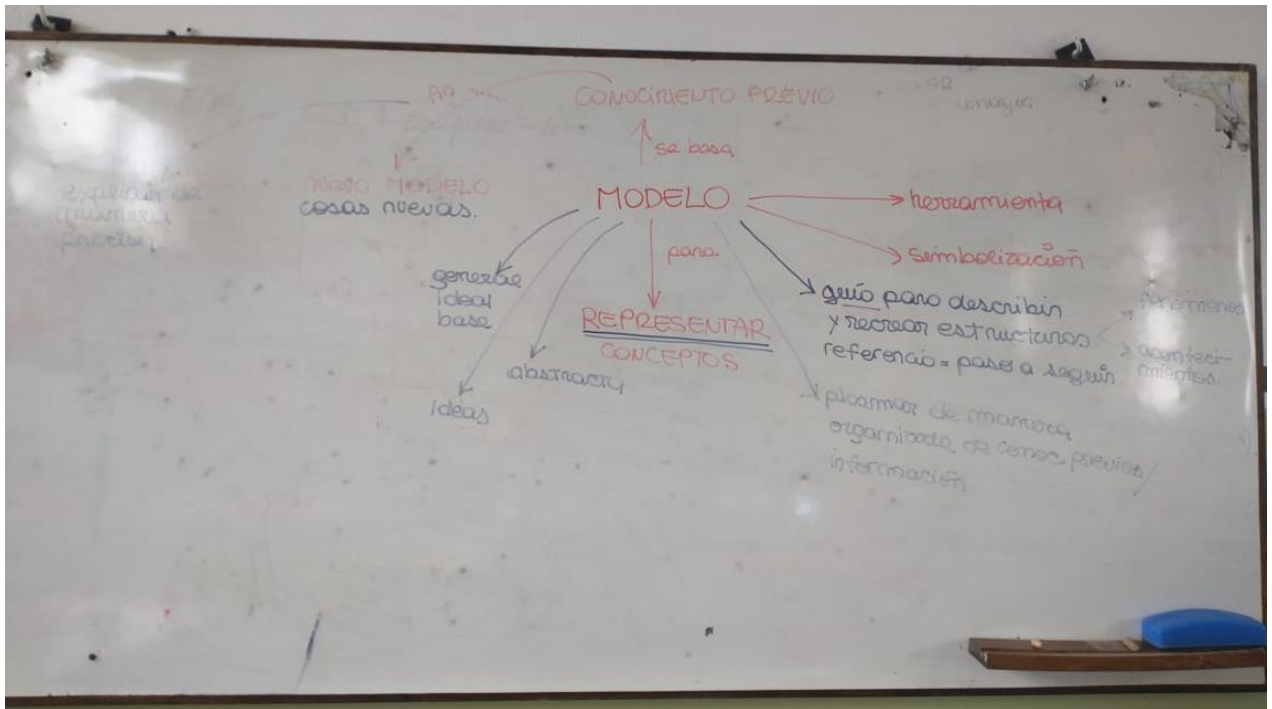 CONOCIMIENTO PREVIO
se basa
explicar de
manera
precisa
NUEVO MODELO
cosas nuevas.
MODELO
herramienta
simbolización
para
REPRESENTAR
CONCEPTOS
generar
ideas
base
ideas
abstracta
guía para describir
y recrear estructuras
referencia = pasos a seguir
fenómenos
aconteci-
mientos.
plasmar de manera
organizada, de conoc. previos/
información